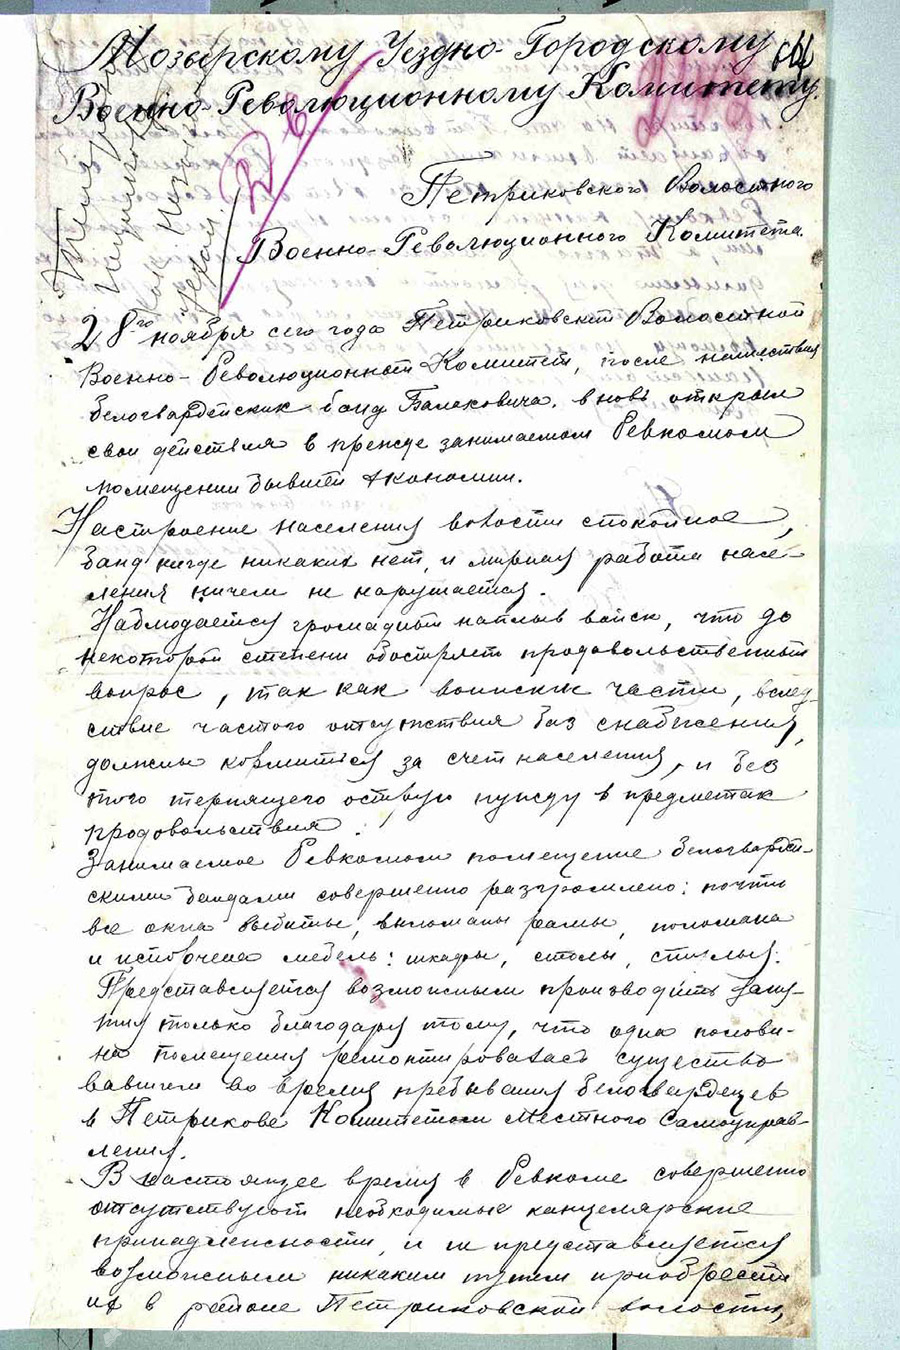 Мозырскому Уездно-Городскому
Военно-Революционному Комитету.
Петриковского Волостного
Военно-Революционного Комитета.
28го ноября сего года Петриковский Волостной
Военно-Революционный Комитет, после нашествия
белогвардейских банд Балаховича, вновь открыл
свои действия в прежде занимаемом Ревкомом
помещении бывшей экономии.
Настроение населения волости спокойное,
банд нигде никаких нет, и мирная работа насе-
ления ничем не нарушается.
Наблюдается громадный наплыв войск, что до
некоторой степени обостряет продовольственный
вопрос, так как воинские части, вслед-
ствие частого отсутствия баз снабжения,
должны кормиться за счет населения, и без
того терпящего острую нужду в предметах
продовольствия.
Занимаемое Ревкомом помещение белогвардей-
скими бандами совершенно разгромлено: почти
все окна выбиты, выломаны рамы, поломана
и испорчена мебель: шкафы, столы, стулья.
Представляется возможным производить заня-
тия только благодаря тому, что одна полови-
на помещения ремонтировалась существо
вавшем во время пребывания белогвардейцев
в Петрикове Комитетом Местного Самоуправ-
ления.
В настоящее время в Ревкоме совершенно
отсутствуют необходимые канцелярские
принадлежности, и не представляется
возможным никаким путем приобрести
их в районе Петриковской волости,